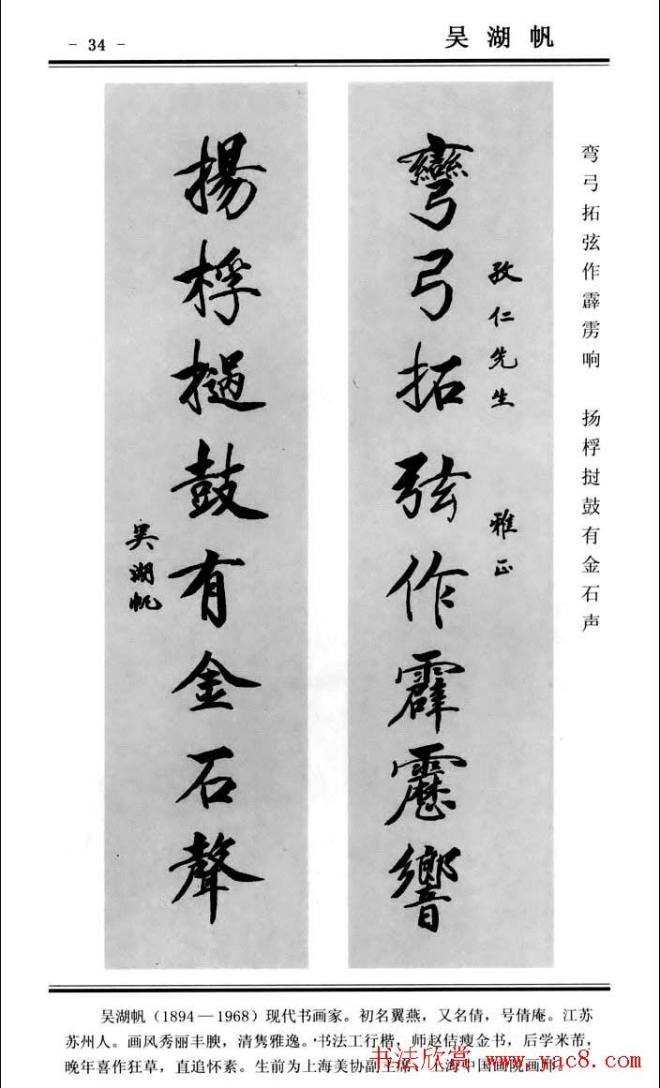 - 34 -
吴湖帆
弯弓拓弦作霹雳响 扬桴挝鼓有金石声
彎弓拓弦作霹靂響
孜仁先生 雅正
揚桴撾鼓有金石聲
吴湖帆
吴湖帆（1894—1968）现代书画家。初名翼燕，又名倩，号倩庵。江苏
苏州人。画风秀丽丰腴，清隽雅逸。书法工行楷，师赵佶瘦金书，后学米芾，
晚年喜作狂草，直追怀素。生前为上海美协副主席、上海中国画院画师。
书法欣赏 www.yac8.com